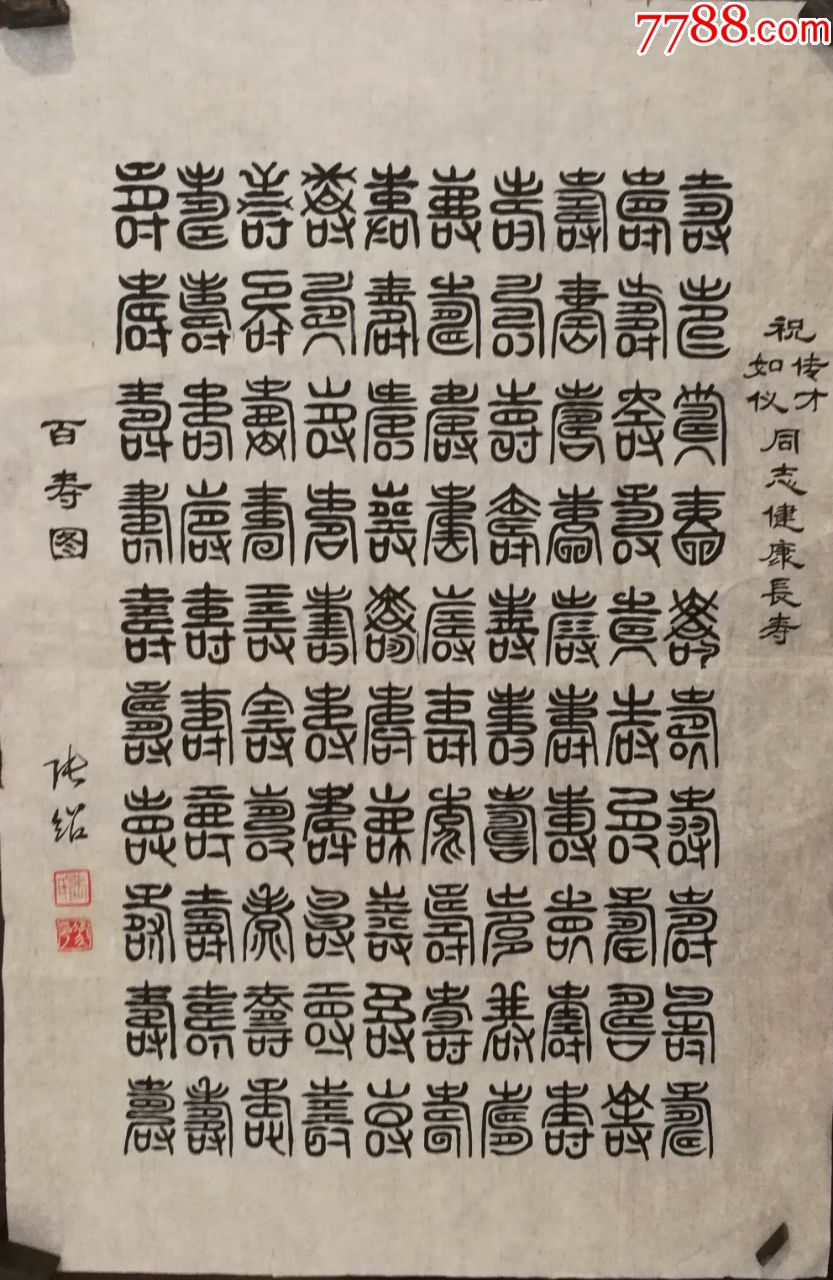 7788.com
祝传才如仪同志健康長寿
壽壽壽壽壽壽壽壽壽壽
壽壽壽壽壽壽壽壽壽壽
壽壽壽壽壽壽壽壽壽壽
壽壽壽壽壽壽壽壽壽壽
壽壽壽壽壽壽壽壽壽壽
壽壽壽壽壽壽壽壽壽壽
壽壽壽壽壽壽壽壽壽壽
壽壽壽壽壽壽壽壽壽壽
壽壽壽壽壽壽壽壽壽壽
壽壽壽壽壽壽壽壽壽壽
百寿图
张绍